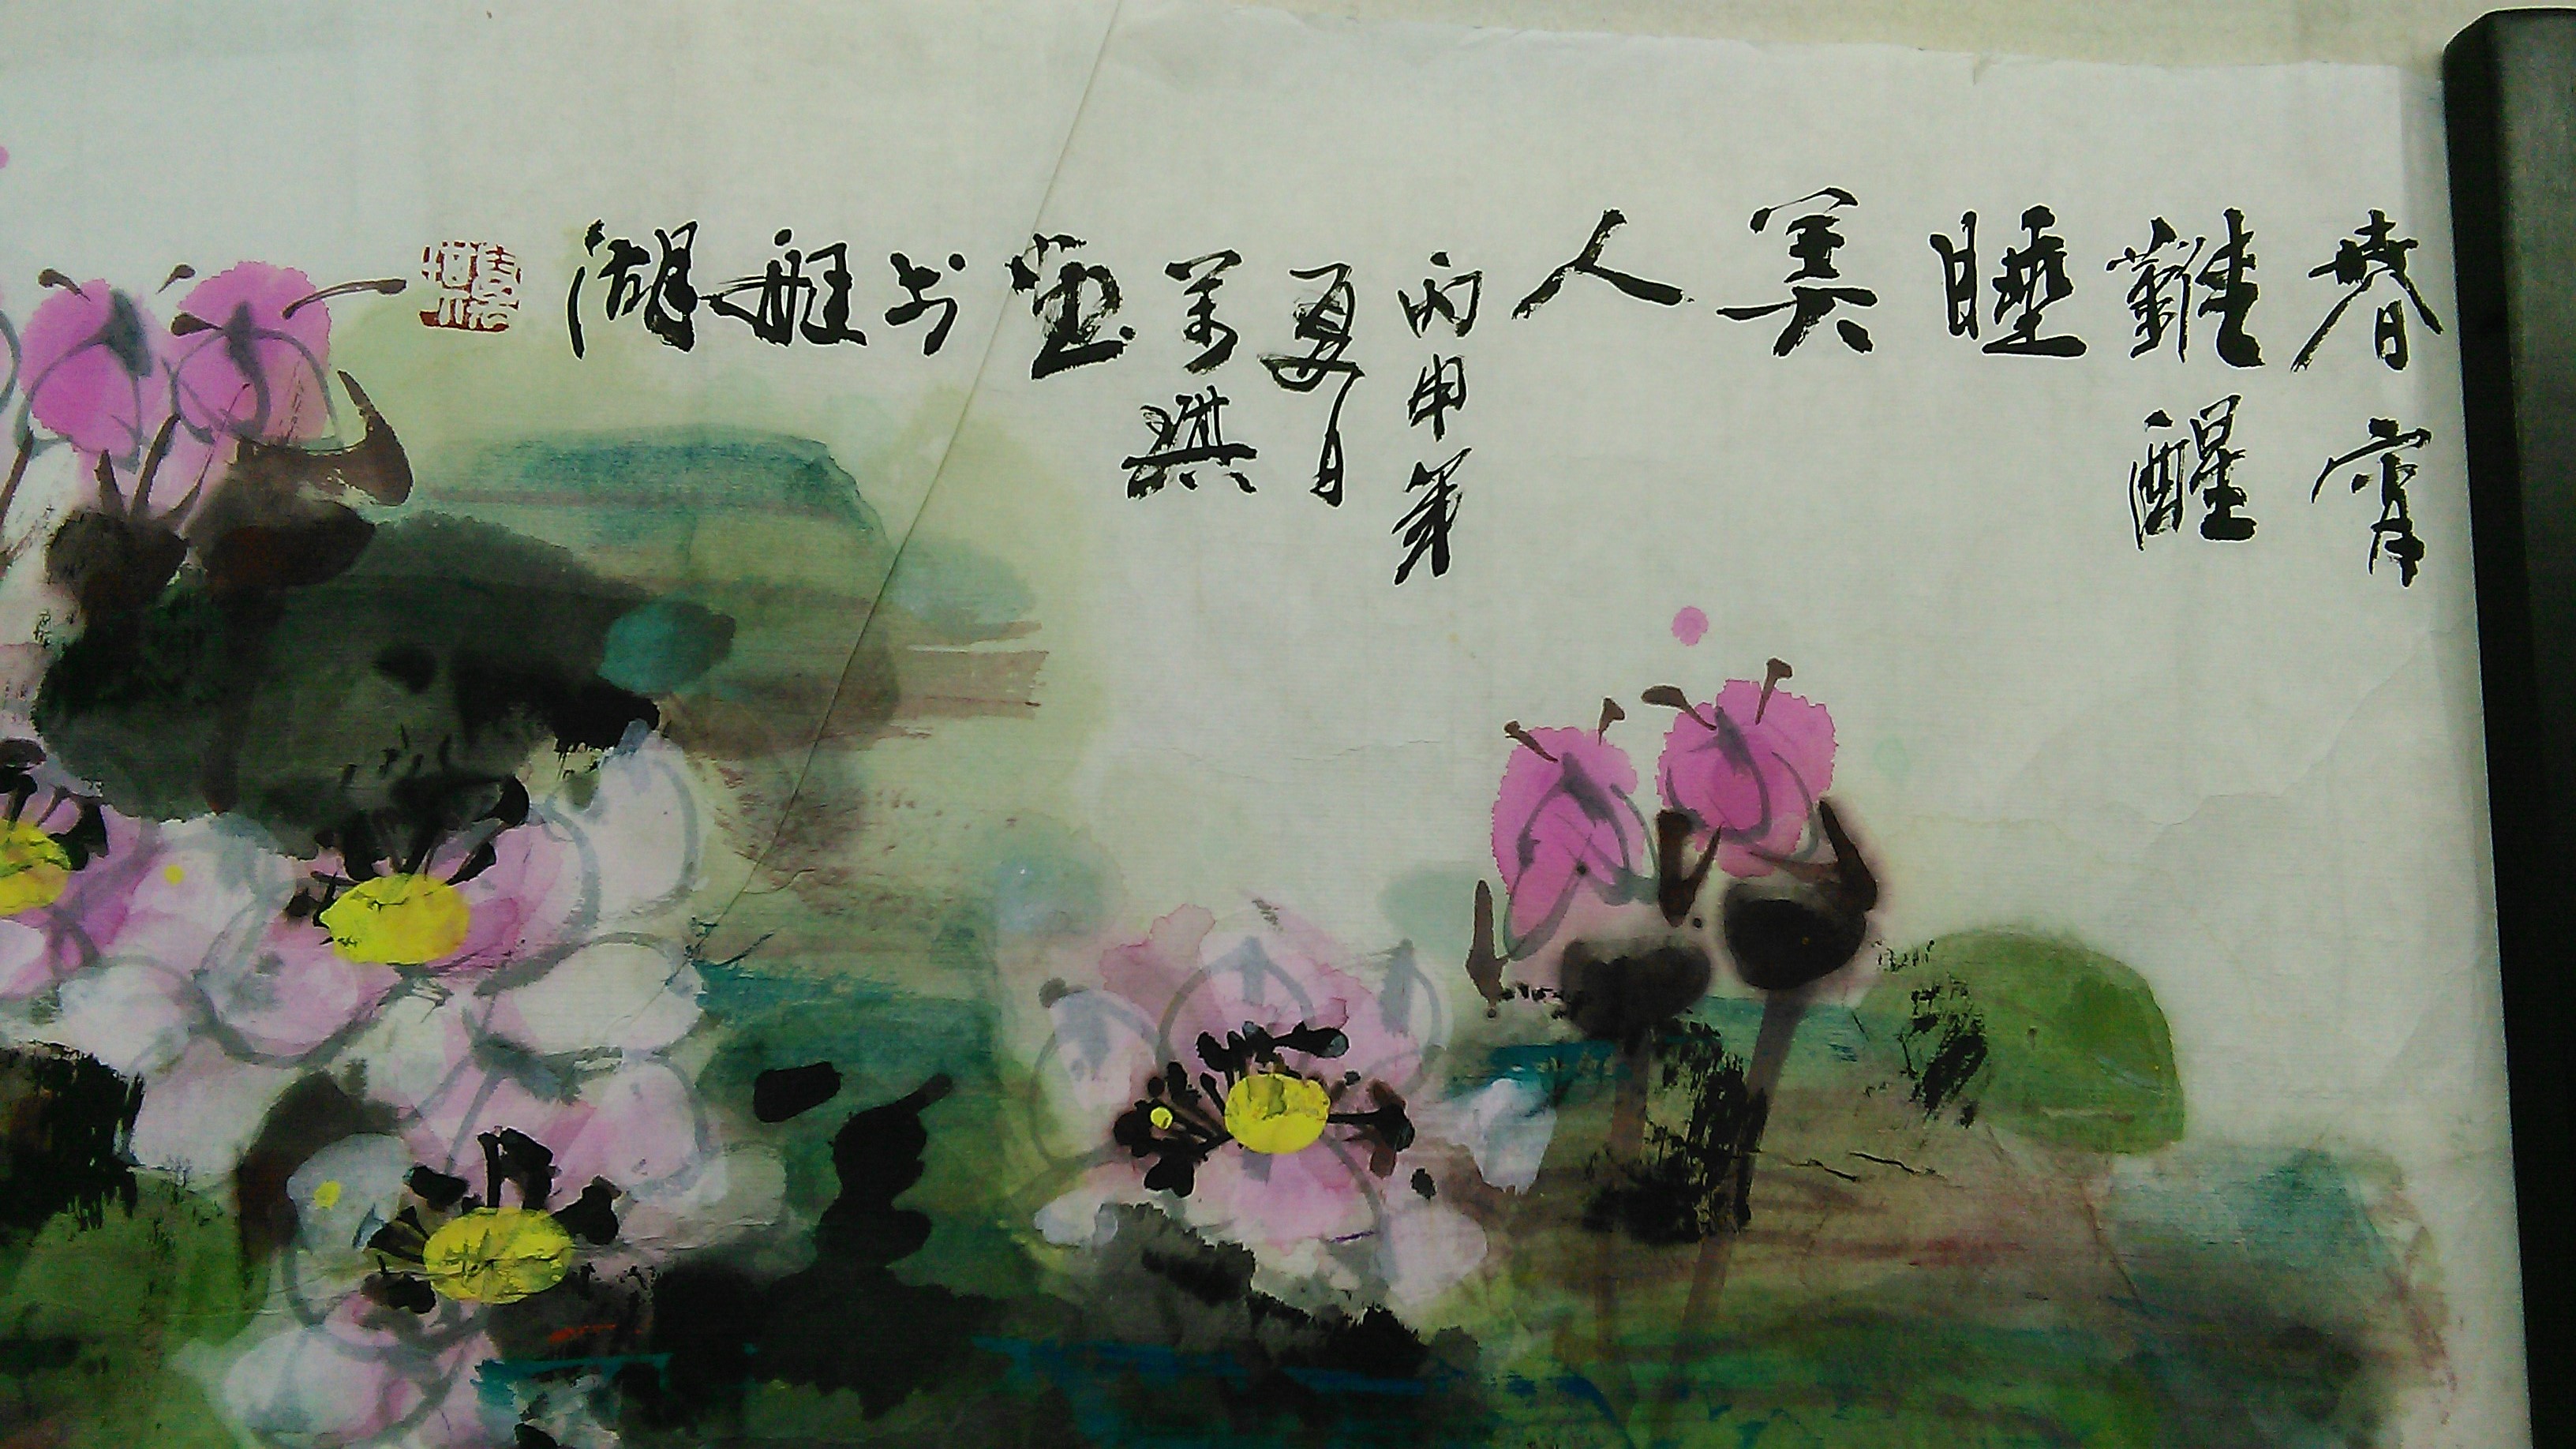 春宵
難醒
睡
美
人
丙申年
夏月
萬琪
畫
於
艇
湖